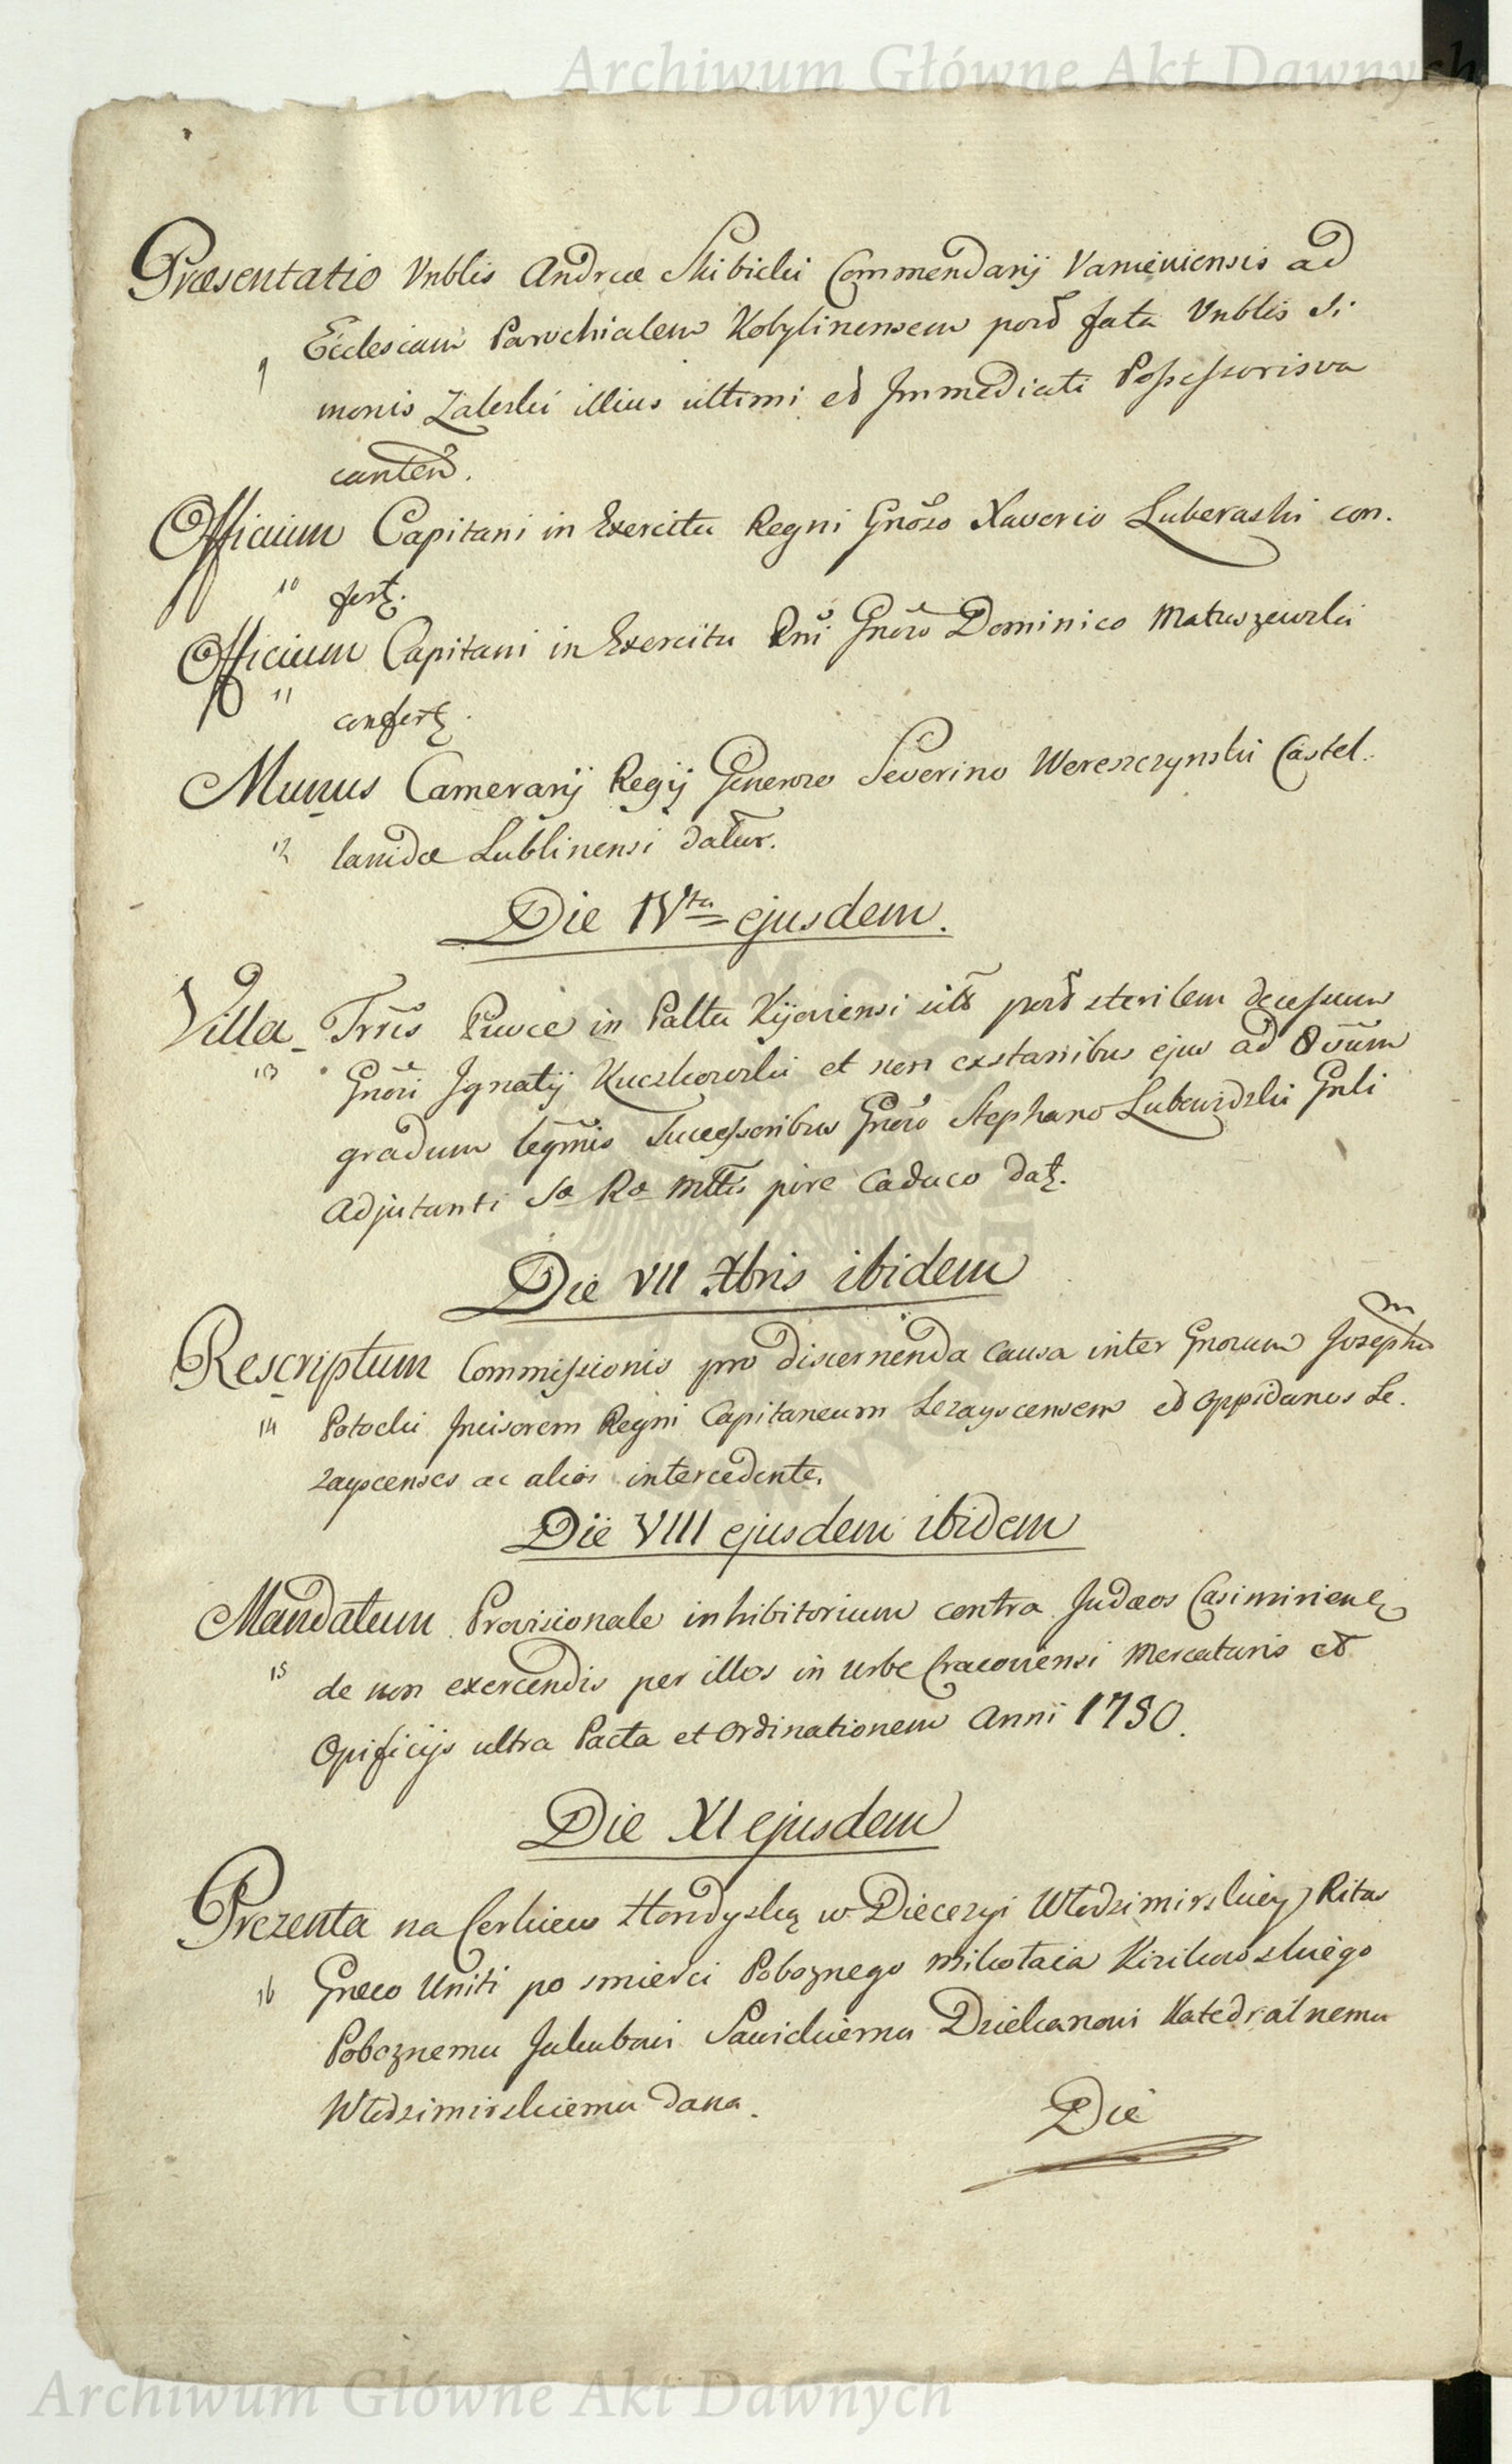 Archiwum Główne Akt Dawnych
Præsentatio Vnblis Andreæ Skibicki Commendarij Vanieviensis ad
9 Ecclesiam Parochialem Kobylinensem post fata Vnblis Si
monis Zaleski illius ultimi et Immediati Possessoris va
canten.
Officium Capitani in Exercitu Regni Gnoso Xaverio Luberaski con.
10 fert.
Officium Capitani in Exercitu Rni Gnoso Dominico Matuszewski
11 confert.
Munus Camerarij Regij Generoso Severino Wereszczynski Castel.
12 lanidæ Lublinensi datur.
Die IVta ejusdem.
Villa Trris in Palttu Kijoviensi sita post sterilem decessum
13 Gnosi Ignatij Kuczkowski et non exstantibus ejus ad 8vum
gradum legmis Successoribus Gnoso Stephano Gnli
Adjutanti Sæ Ræ Mttis jure Caduco dat.
Die VII Xbris ibidem
Rescriptum Commissionis pro discernenda causa inter Gnosum Josephum
14 Potocki Incisorem Regni Capitaneum Lezayscensem et oppidanos Le.
zayscenses ac alios intercedente.
Die VIII ejusdem ibidem
Mandatum Provisionale inhibitorium contra Judæos Casimirienses
15 de non exercendis per illos in urbe Cracoviensi Mercaturis et
Opificijs ultra Pacta et Ordinationem Anni 1780.
Die XI ejusdem
Prezenta na Cerkiew Hordyską w Diecezyi Włodzimirskiey Ritus
16 Græco Uniti po smierci Poboznego Mikołaia Kirikowskiego
Poboznemu Jakubowi Sawickiemu Dziekanowi Katedralnemu
Włodzimirskiemu dana.
Die
Archiwum Główne Akt Dawnych